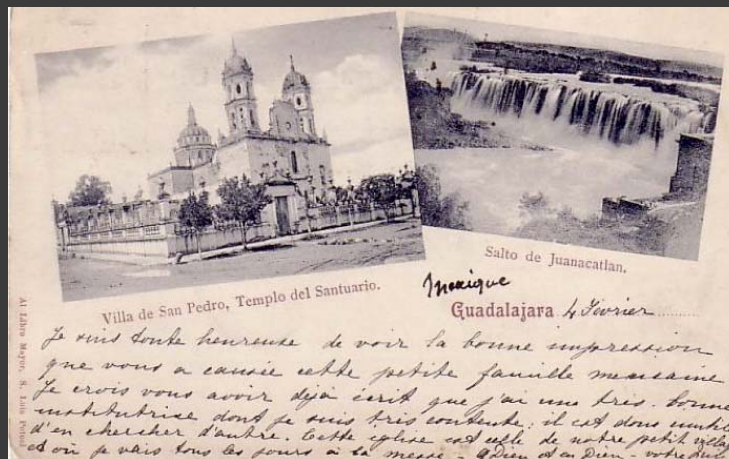 Villa de San Pedro, Templo del Santuario.
Salto de Juanacatlan.
Mexique
Guadalajara 4 Février
Je suis toute heureuse de voir la bonne impression
que vous a causée cette petite famille mexicaine
Je crois vous avoir déjà écrit que j'ai une très bonne
institutrice dont je suis très contente; il est donc inutile
d'en chercher d'autre. Cette église est celle de notre petit village
et où je vais tous les jours à la messe - à Dieu et en Dieu - votre
Al Libro Mayor, S. Luis Potosí